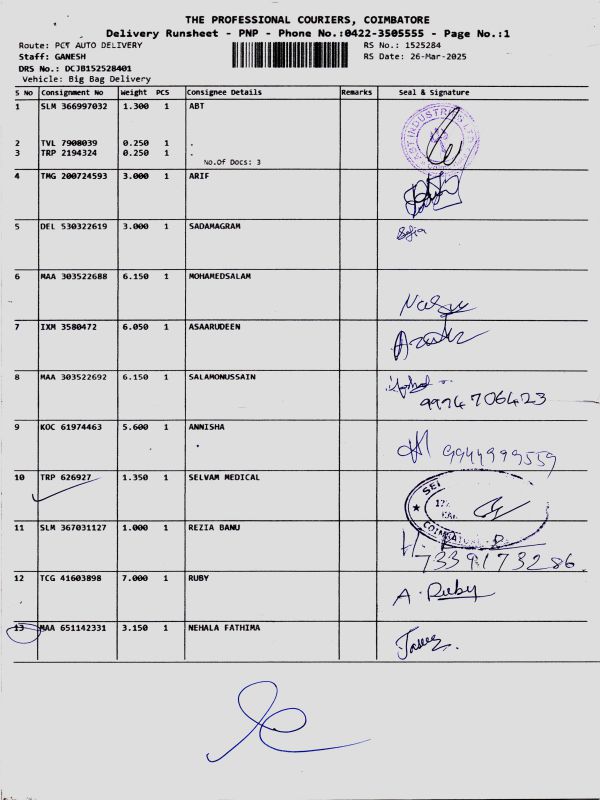 THE PROFESSIONAL COURIERS, COIMBATORE
Delivery Runsheet - PNP - Phone No.:0422-3505555 - Page No.:1
Route: PCT AUTO DELIVERY RS No.: 1525284
Staff: GANESH RS Date: 26-Mar-2025
DRS No.: DCJB152528401
Vehicle: Big Bag Delivery
S No Consignment No Weight PCS Consignee Details Remarks Seal & Signature
1 SLM 366997032 1.300 1 ABT
2 TVL 7908039 0.250 1 .
3 TRP 2194324 0.250 1 .
No.Of Docs: 3
4 TMG 200724593 3.000 1 ARIF
5 DEL 530322619 3.000 1 SADAMAGRAM Sofia
6 MAA 303522688 6.150 1 MOHAMEDSALAM
7 IXM 3580472 6.050 1 ASAARUDEEN
8 MAA 303522692 6.150 1 SALAMONUSSAIN
9974706423
9 KOC 61974463 5.600 1 ANNISHA
9944999559
10 TRP 626927 1.350 1 SELVAM MEDICAL
COIMBATORE
11 SLM 367031127 1.000 1 REZIA BANU
7339173286
12 TCG 41603898 7.000 1 RUBY A. Ruby
13 MAA 651142331 3.150 1 NEHALA FATHIMA